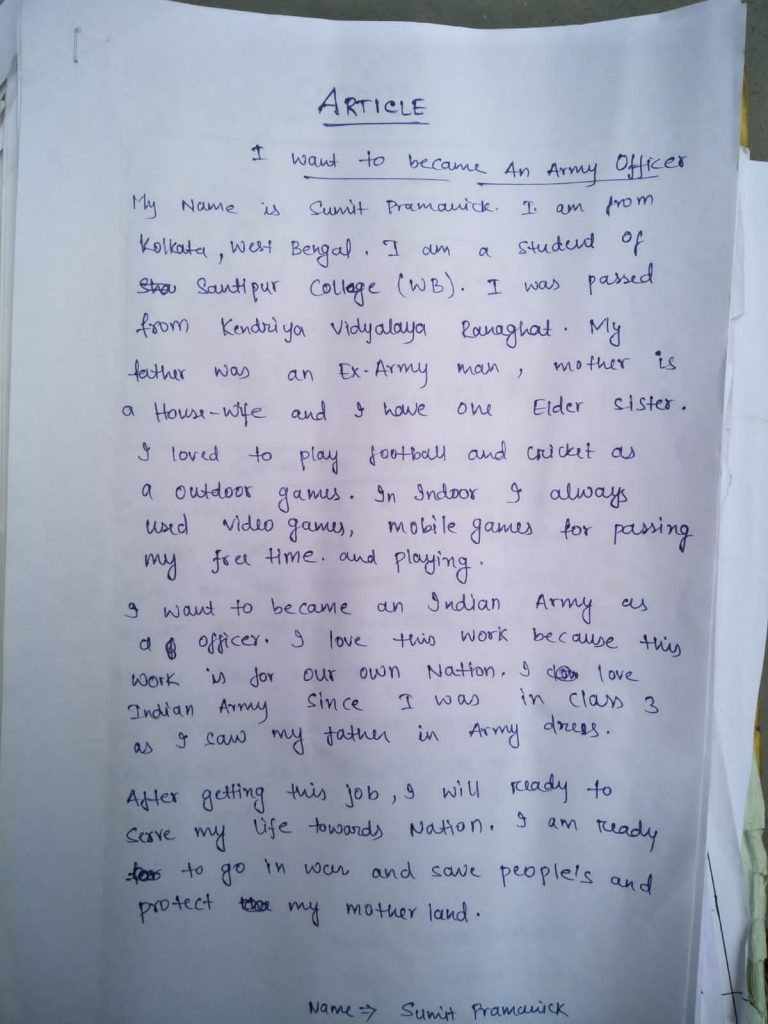 ARTICLE
I want to became An Army Officer
My Name is Sumit Pramanick. I am from
Kolkata, West Bengal. I am a student of
Santipur Collage (WB). I was passed
from Kendriya Vidyalaya Ranaghat. My
father was an Ex-Army man, mother is
a House-wife and I have one Elder sister.
I loved to play football and cricket as
a outdoor games. In Indoor I always
used video games, mobile games for passing
my free time. and playing.
I want to became an Indian Army as
a officer. I love this work because this
work is for our own Nation. I love
Indian Army since I was in class 3
as I saw my father in Army dress.
After getting this job, I will ready to
serve my life towards Nation. I am ready
to go in war and save people's and
protect my mother land.
Name ⇒ Sumit Pramanick